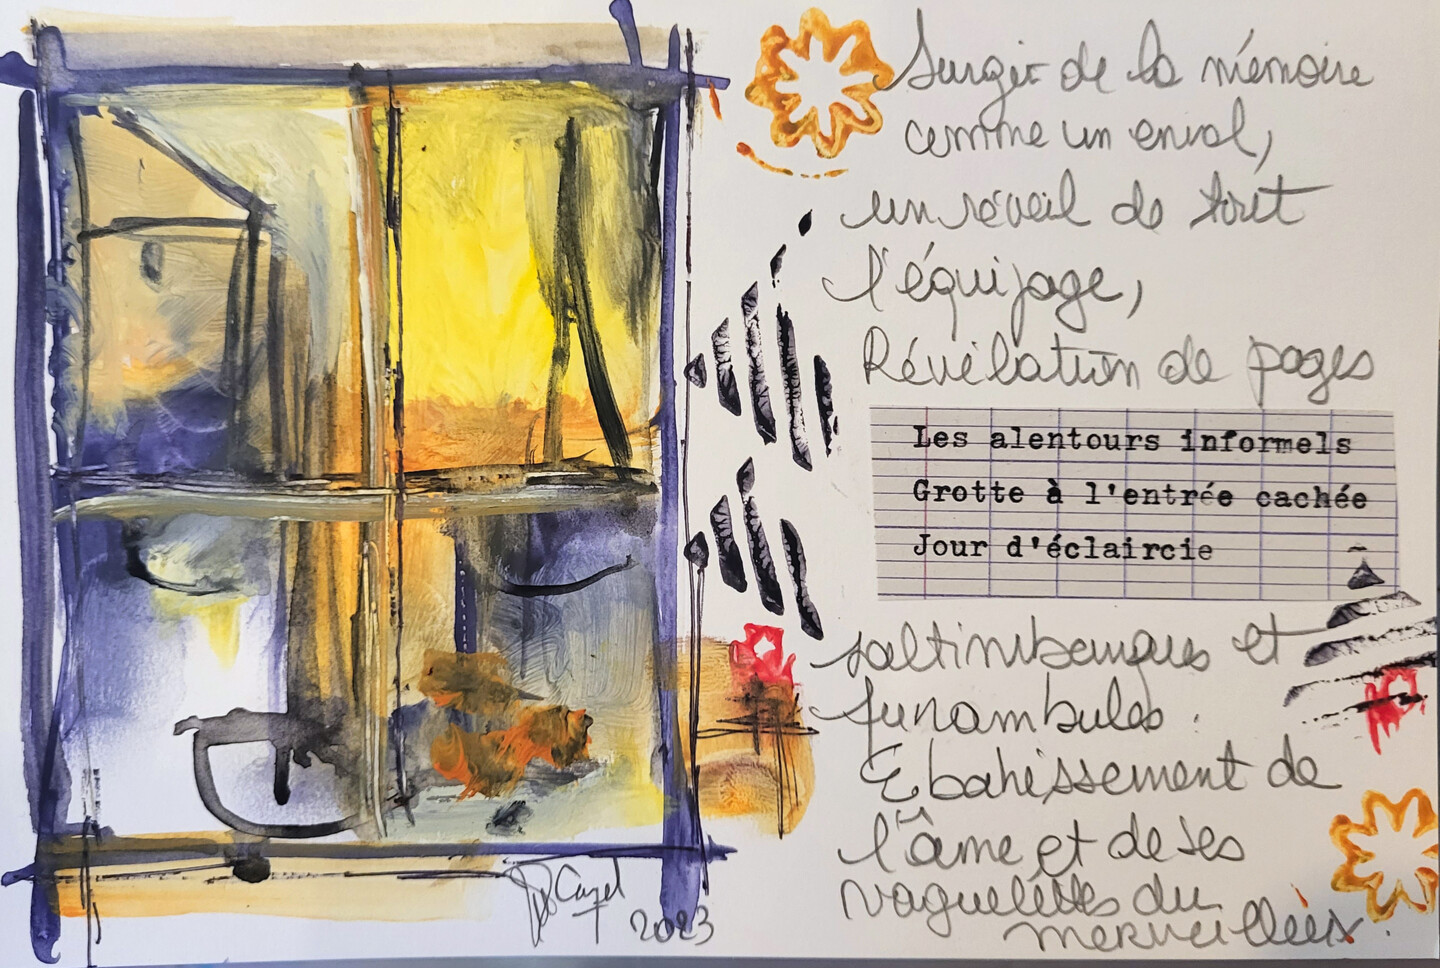 Surgir de la mémoire
comme un envol,
un réveil de tout
l'équipage,
Révélation de pages
Les alentours informels
Grotte à l'entrée cachée
Jour d'éclaircie
saltimbanques et
funambules :
Ebahissement de
l'âme et de ses
vaguelettes du
merveilleux.
Cazel
2023